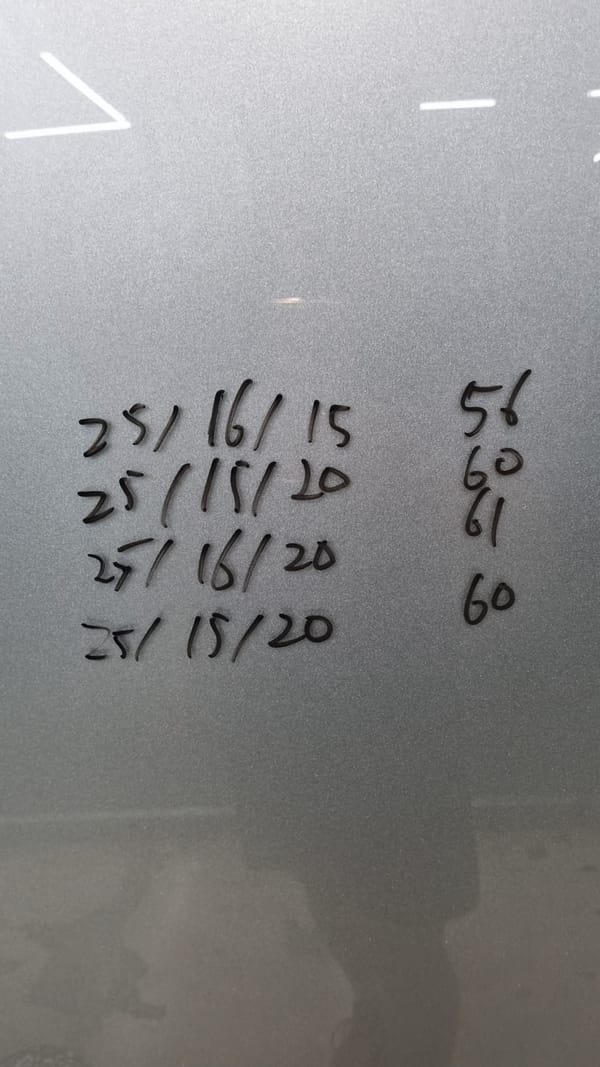 25/16/15 56
25/15/20 60
25/16/20 61
25/15/20 60